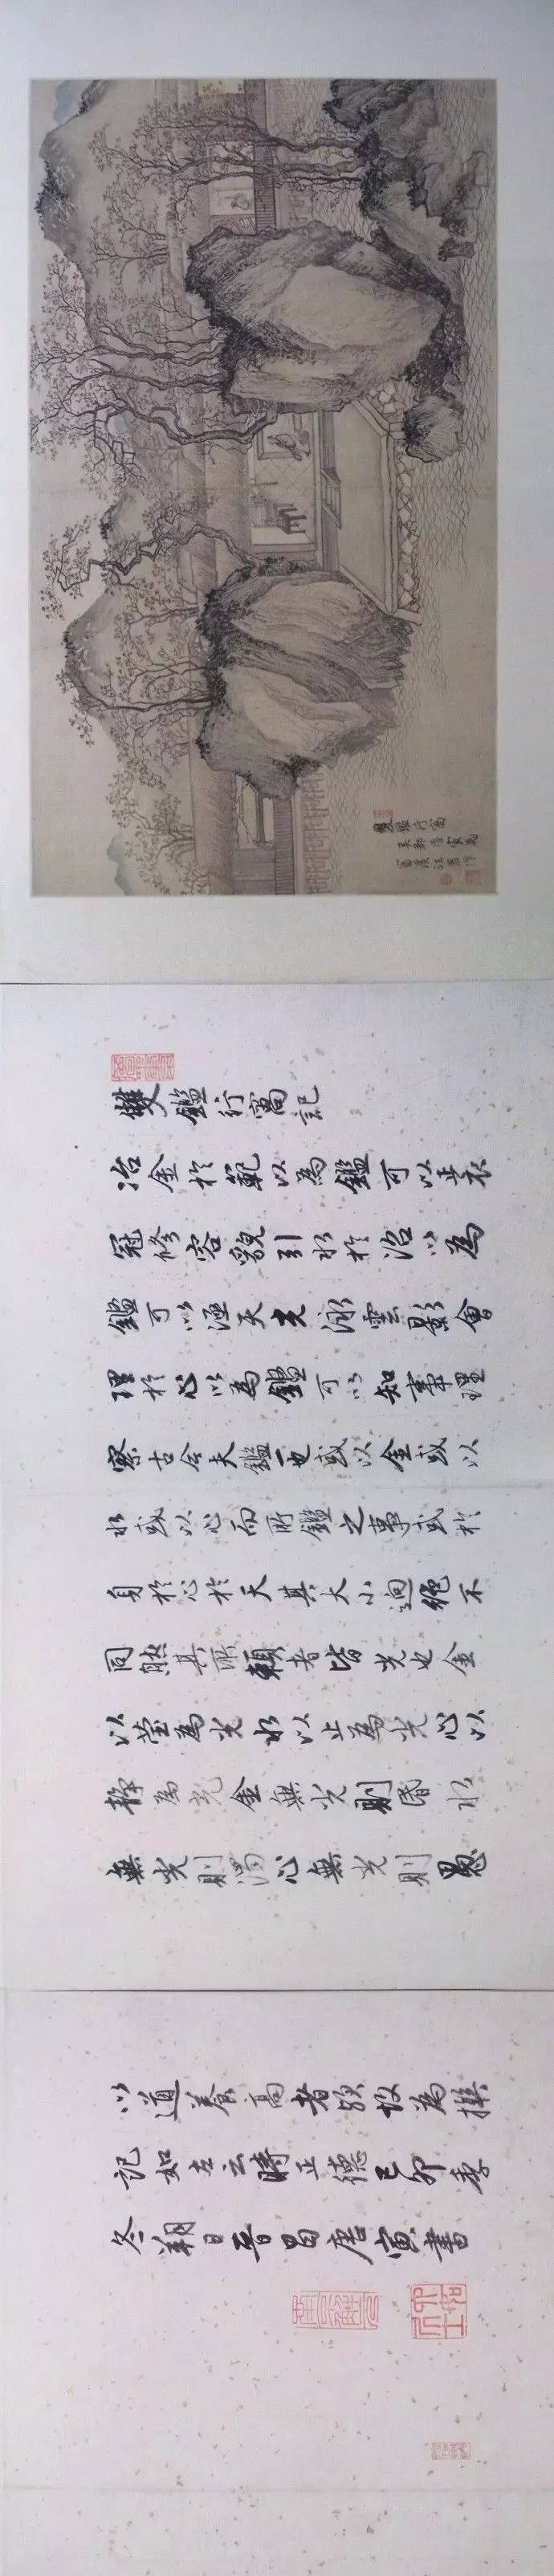 雙鑑行窩
吳郡唐寅為
富溪汪君作
雙鑑行窩記
冶金於範以為鑑可以正衣
冠修容貌引水於沼以為
鑑可以涵天光泳雲影會
理於心以為鑑可以知事理
察古今夫鑑一也或以金或以
水或以心而所鑑之事或於
身於心於天其大小迥絕不
同然其所賴者皆光也金
以瑩為光水以止為光心以
靜為光金無光則昏水
無光則濁心無光則愚
以道養高者歟故為撰
記如左云時正德己卯季
冬朔日晉昌唐寅書